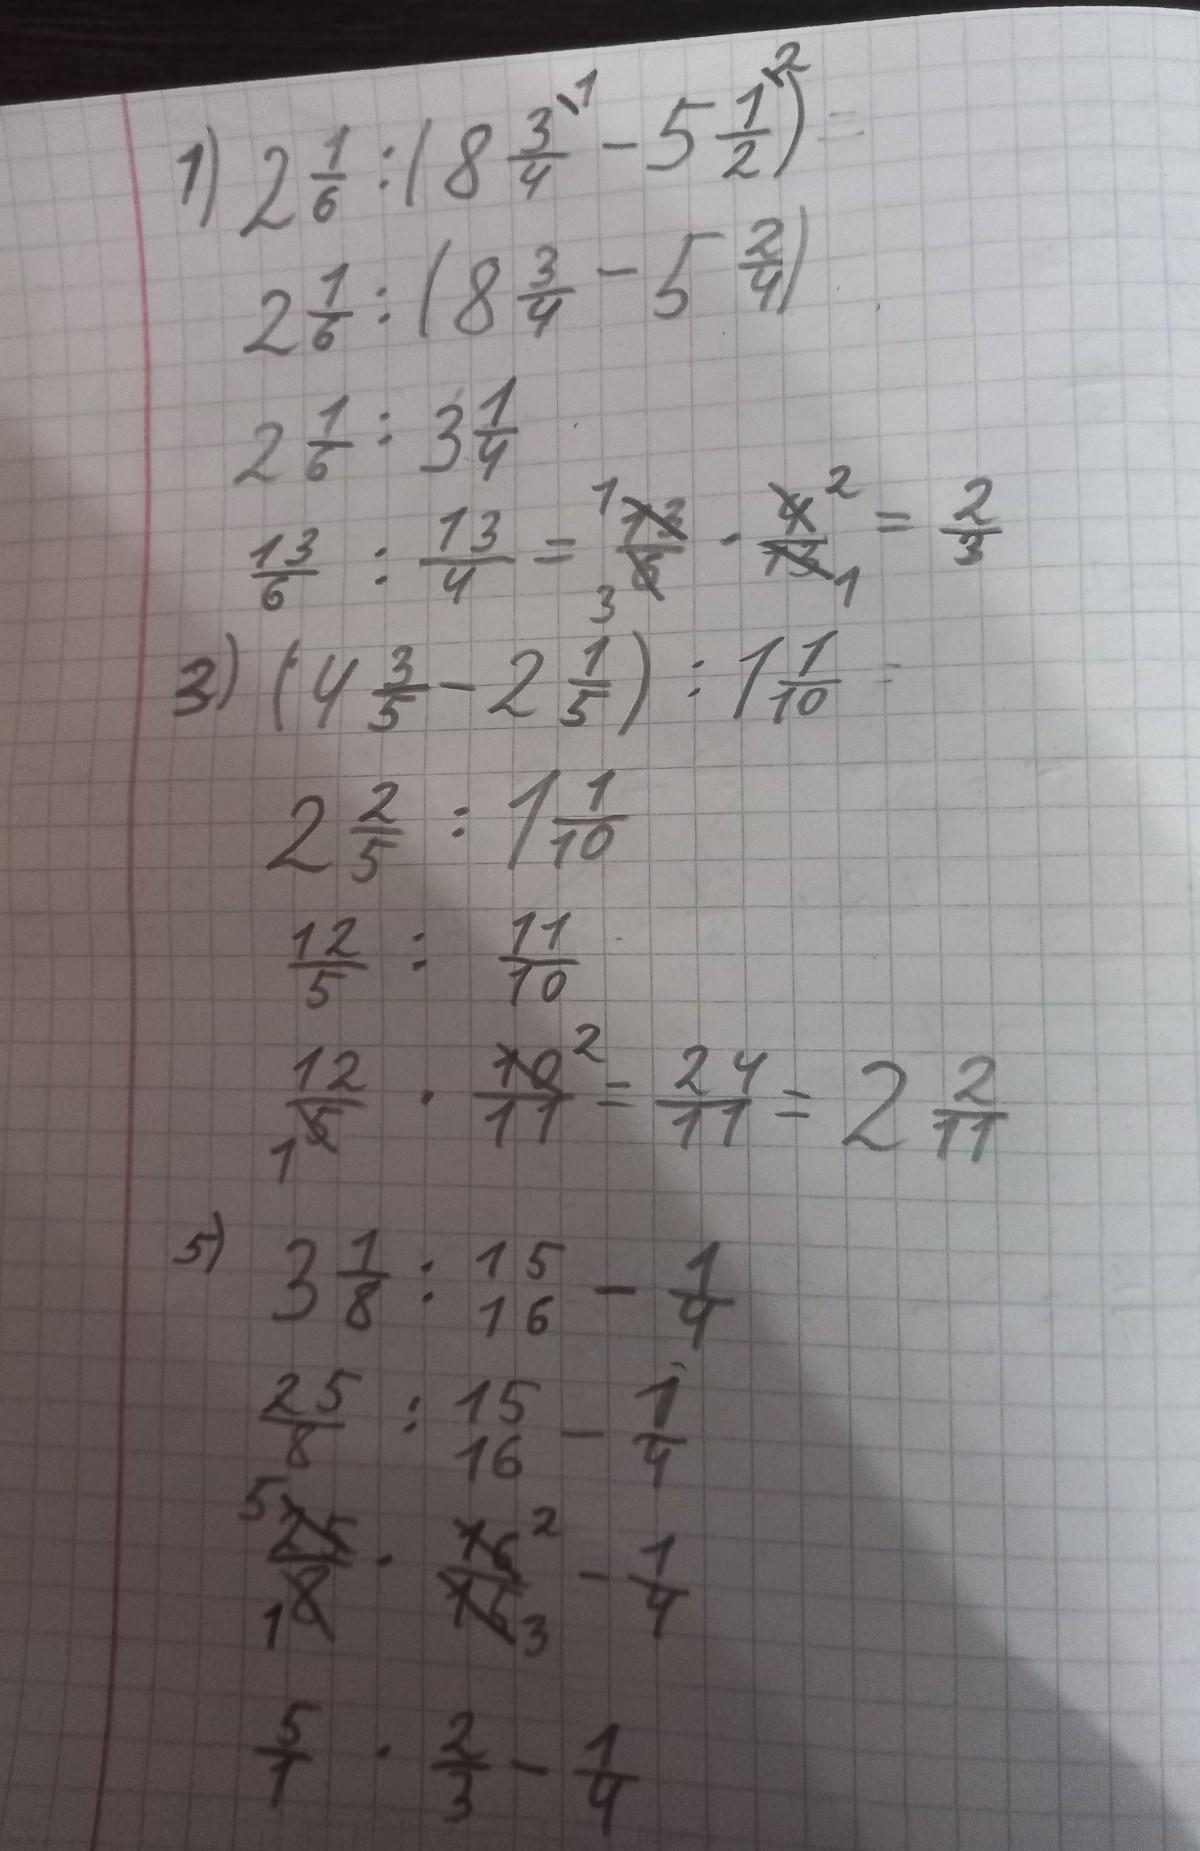 1) 2 1/6 : (8 3/4 ^1 - 5 1/2 ^2) =
2 1/6 : (8 3/4 - 5 2/4)
2 1/6 : 3 1/4
13/6 : 13/4 = ^1 13/6 _3 · 4/13 ^2 _1 = 2/3
3) (4 3/5 - 2 1/5) : 1 1/10 =
2 2/5 : 1 1/10
12/5 : 11/10
12/5 _1 · 10/11 ^2 = 24/11 = 2 2/11
5) 3 1/8 : 15 16 - 1/4
25/8 : 15 16 - 1/4
^5 25/8 _1 · 16/15 ^2 _3 - 1/4
5/1 · 2/3 - 1/4